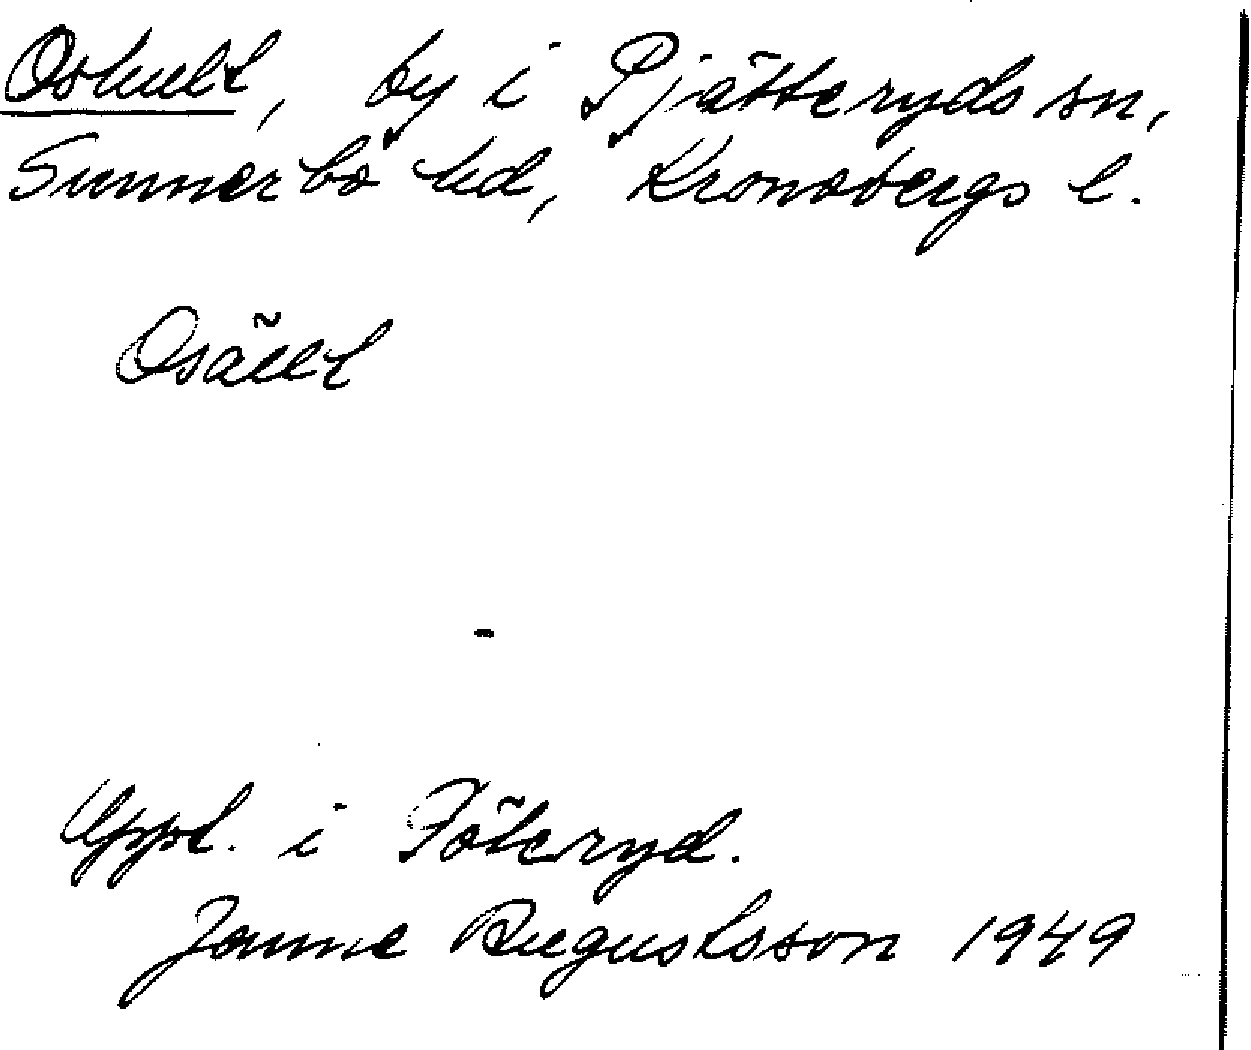 Oshult, by i Pjätteryds sn,
Sunnerbo hd, Kronobergs l.
Osällt
Uppt. i Föteryd.
Janne Augustsson 1949